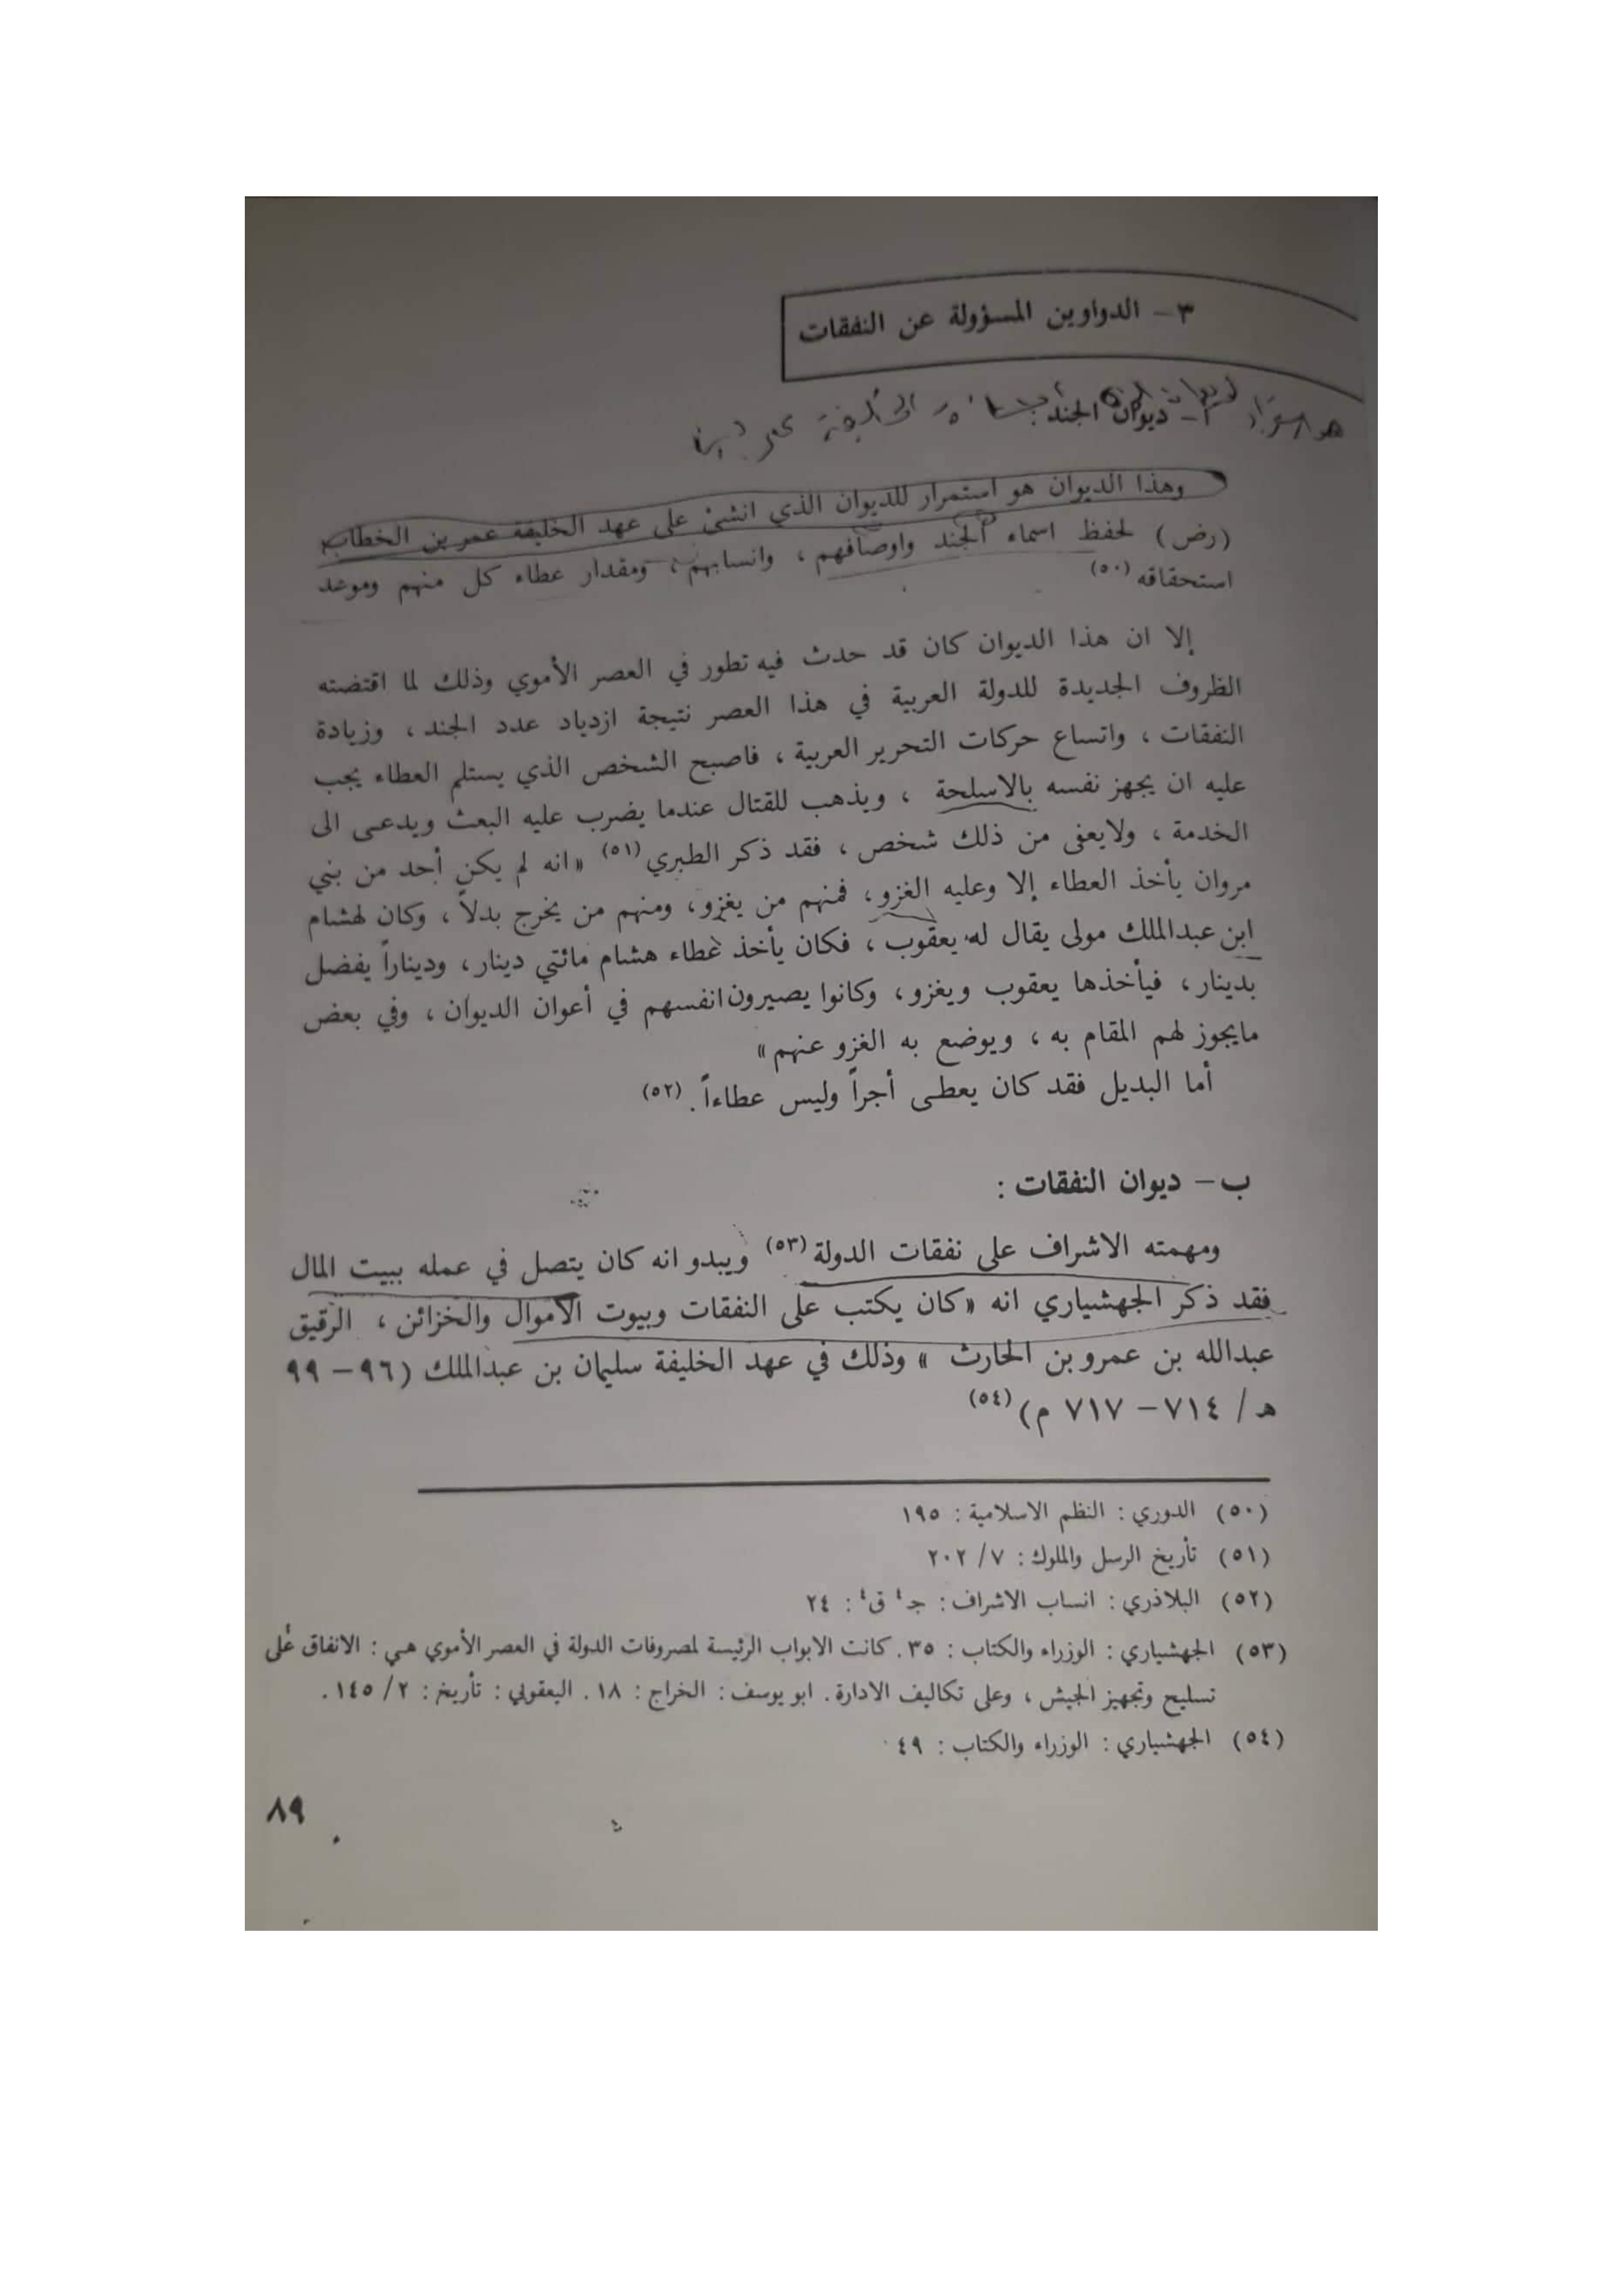 ٣ – الدواوين المسؤولة عن النفقات
أ – ديوان الجند
وهذا الديوان هو استمرار للديوان الذي انشئ على عهد الخليفة عمر بن الخطاب
(رض) لحفظ اسماء الجند واوصافهم ، وانسابهم ، ومقدار عطاء كل منهم وموعد
استحقاقه (٥٠)
إلا ان هذا الديوان كان قد حدث فيه تطور في العصر الأموي وذلك لما اقتضته
الظروف الجديدة للدولة العربية في هذا العصر نتيجة ازدياد عدد الجند ، وزيادة
النفقات ، واتساع حركات التحرير العربية ، فاصبح الشخص الذي يستلم العطاء يجب
عليه ان يجهز نفسه بالاسلحة ، ويذهب للقتال عندما يضرب عليه البعث ويدعى الى
الخدمة ، ولايعفى من ذلك شخص ، فقد ذكر الطبري (٥١) «انه لم يكن أحد من بني
مروان يأخذ العطاء إلا وعليه الغزو ، فمنهم من يغزو، ومنهم من يخرج بدلاً ، وكان لهشام
ابن عبدالملك مولى يقال له يعقوب ، فكان يأخذ عطاء هشام مائتي دينار، وديناراً يفضل
بدينار ، فيأخذها يعقوب ويغزو، وكانوا يصيرون انفسهم في أعوان الديوان ، وفي بعض
مايجوز لهم المقام به ، ويوضع به الغزو عنهم»
أما البديل فقد كان يعطى أجراً وليس عطاءاً. (٥٢)
ب – ديوان النفقات :
ومهمته الاشراف على نفقات الدولة (٥٣) ويبدو انه كان يتصل في عمله ببيت المال
فقد ذكر الجهشياري انه «كان يكتب على النفقات وبيوت الأموال والخزائن ، الرقيق
عبدالله بن عمرو بن الحارث » وذلك في عهد الخليفة سليمان بن عبدالملك (٩٦ – ٩٩
هـ / ٧١٤ – ٧١٧ م) (٥٤)
(٥٠) الدوري : النظم الاسلامية : ١٩٥
(٥١) تأريخ الرسل والملوك : ٧/ ٢٠٢
(٥٢) البلاذري : انساب الاشراف : جـ٤ ق٤ : ٢٤
(٥٣) الجهشياري : الوزراء والكتاب : ٣٥. كانت الابواب الرئيسة لمصروفات الدولة في العصر الأموي هي : الانفاق على
تسليح وتجهيز الجيش ، وعلى تكاليف الادارة. ابو يوسف : الخراج : ١٨. اليعقوبي : تأريخ : ٢/ ١٤٥.
(٥٤) الجهشياري : الوزراء والكتاب : ٤٩
٨٩